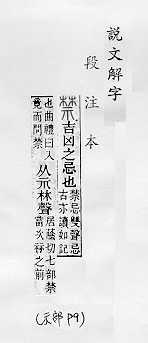 說文解字
段注本
禁 吉凶之忌也禁忌雙聲忌古亦讀如記
也曲禮曰入竟而問禁从示林聲居蔭切七部禁當次祘之前
(示部 P9)